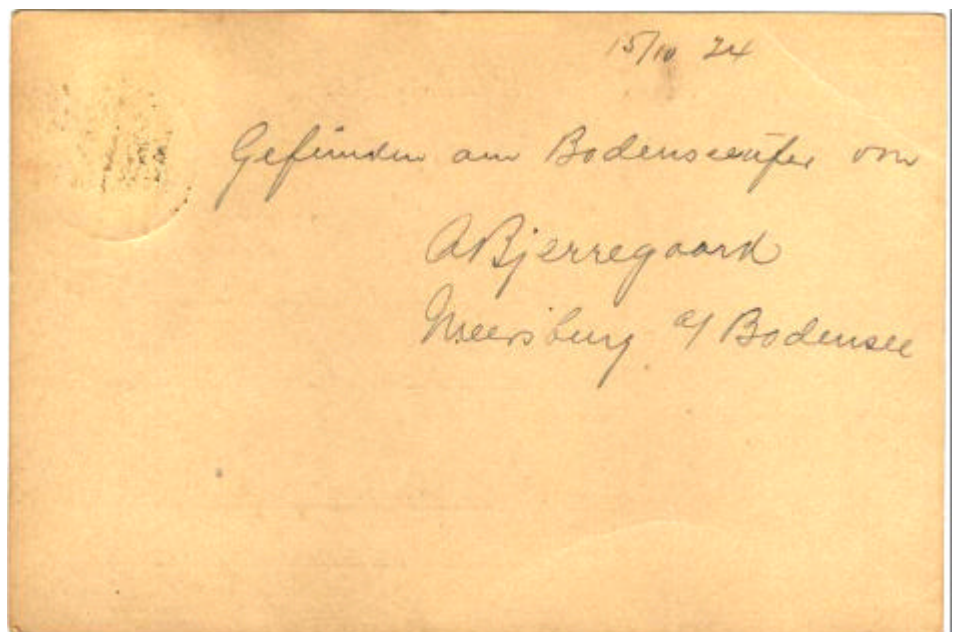 15/10 24
Gefunden am Bodenseeufer von
A Bjerregaard
Meersburg a/ Bodensee